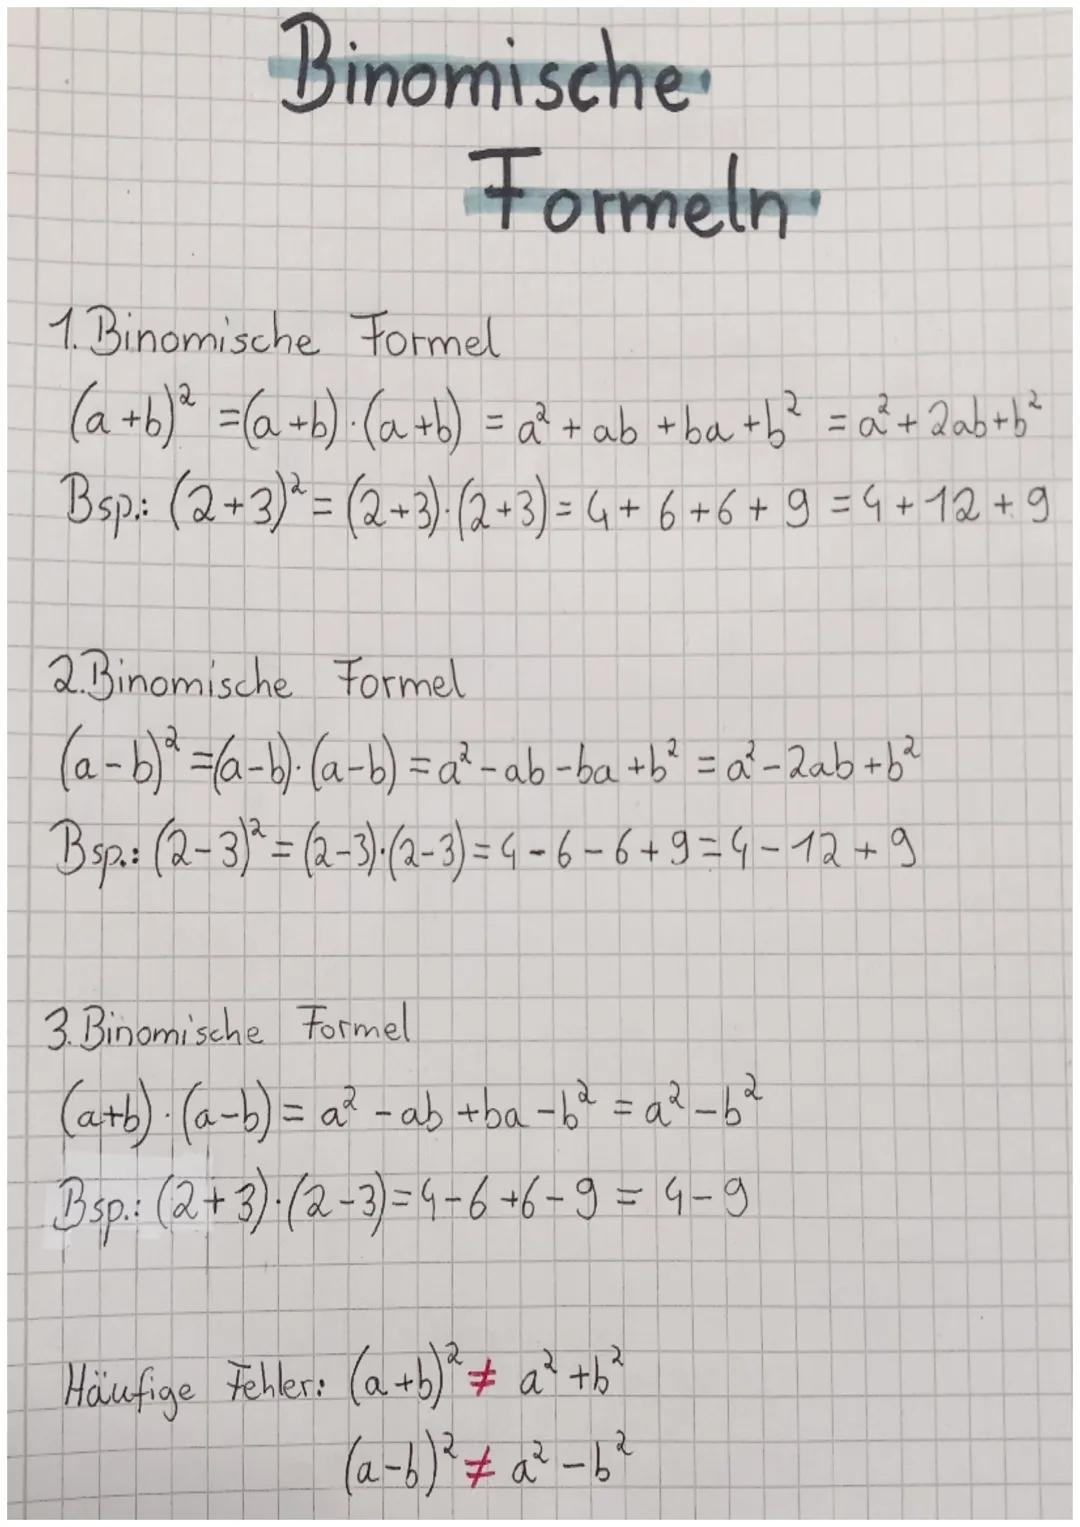 Binomische
Formeln
1. Binomische Formel
(a+b)² = (a+b)·(a+b) = a² + ab + ba + b² = a² + 2ab + b²
Bsp.: (2+3)² = (2+3)·(2+3) = 4 + 6 + 6 + 9 = 4 + 12 + 9
2. Binomische Formel
(a-b)² = (a-b)·(a-b) = a² - ab - ba + b² = a² - 2ab + b²
Bsp.: (2-3)² = (2-3)·(2-3) = 4 - 6 - 6 + 9 = 4 - 12 + 9
3. Binomische Formel
(a+b)·(a-b) = a² - ab + ba - b² = a² - b²
Bsp.: (2+3)·(2-3) = 4 - 6 + 6 - 9 = 4 - 9
Häufige Fehler: (a+b)² ≠ a² + b²
(a-b)² ≠ a² - b²